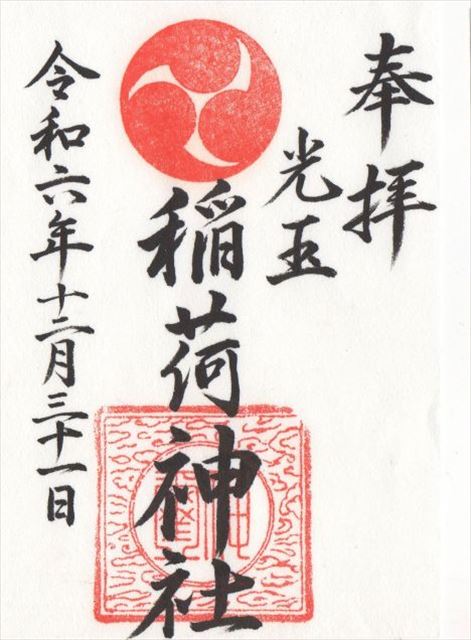 奉拝
光玉
稲荷神社
令和六年十二月三十一日